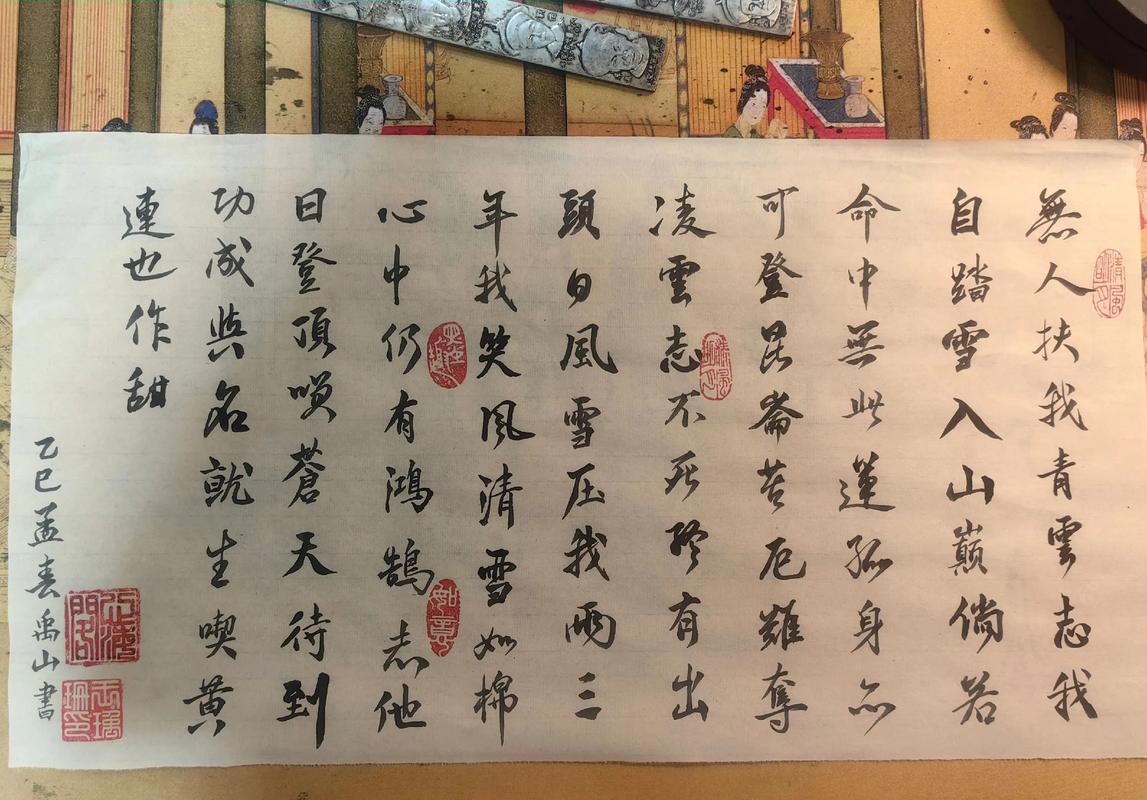 無人扶我青雲志我
自踏雪入山巔倘若
命中無此運孤身亦
可登昆崙苦厄難奪
凌雲志不死終有出
頭日風雪压我兩三
年我笑風清雪如棉
心中仍有鴻鵠志他
日登頂喚蒼天待到
功成與名就生喫黃
連也作甜
乙巳孟春禹山書
清風明月
如意